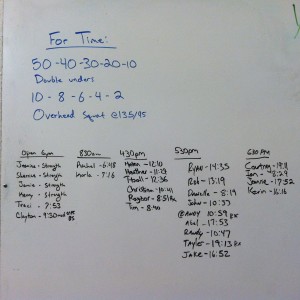 For Time:
50-40-30-20-10
Double unders
10-8-6-4-2
Overhead Squat @135/95
Open Gym
Sherria - Strength
Jamie - Strength
Henry - Strength
Traci - 7:53
Clayton - 9:30
830am
Rachel - 6:48
Karla - 7:16
430pm
Helen - 12:10
Heather - 11:27
T-ball - 12:36
Christina - 10:41
Raybor - 8:51 Rx
Tim - 8:40
530pm
Ryan - 14:35
Rob - 13:19
Danielle - 8:19
John - 10:37
@ANDY 10:59 RX
Abel - 17:53
Randy - 10:47
Taylor - 19:13 RX
Jake - 16:52
630 PM
Courtney - 19:11
Ian - 8:29
Jeanne - 17:52
Kevin - 16:16